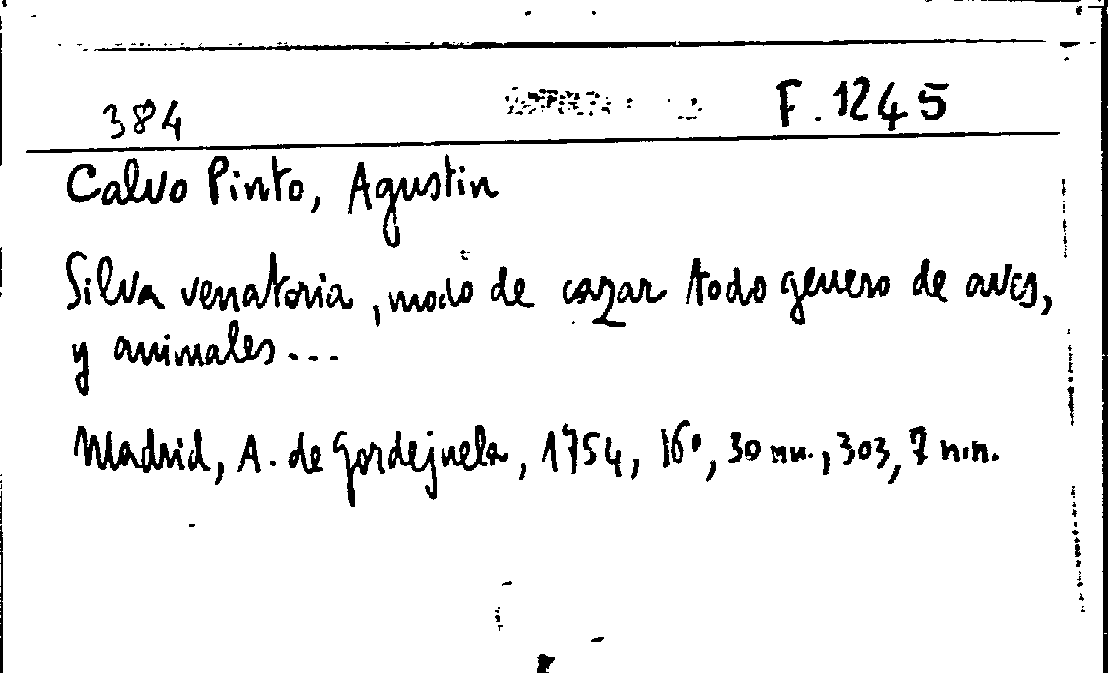 384 F.1245
Calvo Pinto, Agustin
Silva venatoria, modo de cazar todo genero de aves,
y animales...
Madrid, A. de Gordejuela, 1754, 16º, 30 nn., 303, 7 n.n.